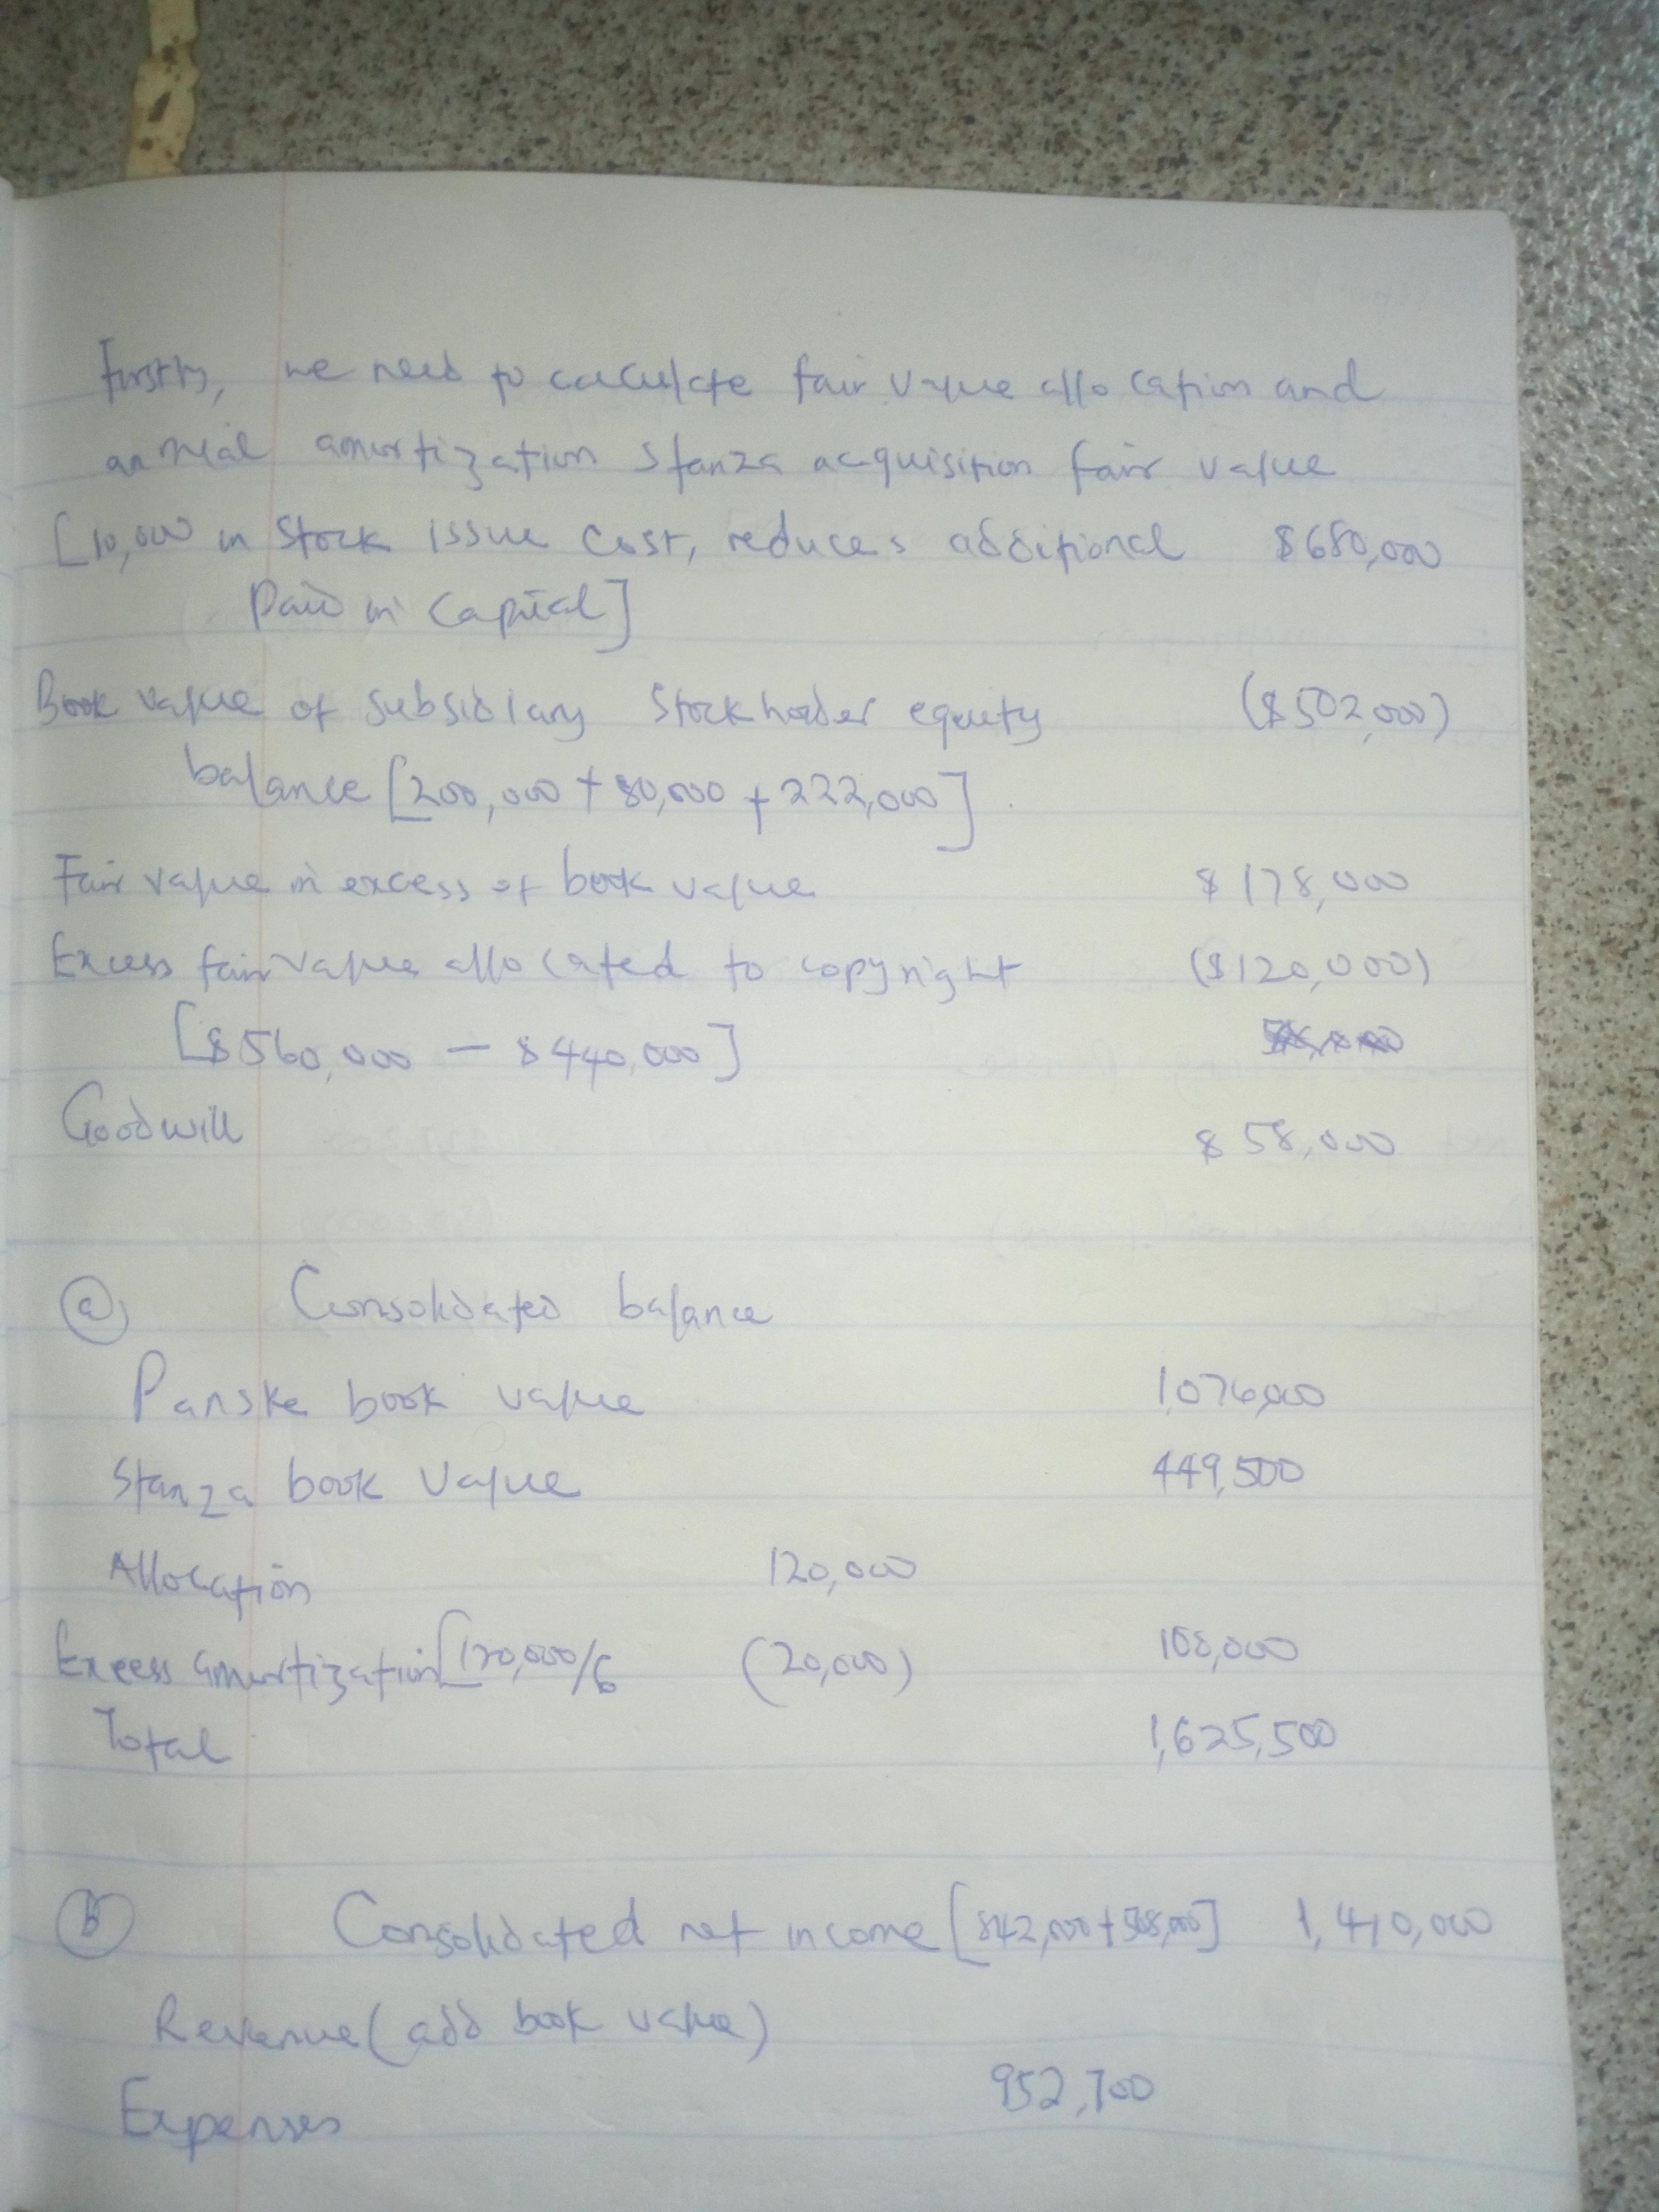 Firstly, we need to calculate fair value allocation and
annual amortization Stanza acquisition fair value
[10,000 in Stock issue Cost, reduces additional $680,000
Paid in Capital]
Book value of subsidiary Stockholder equity ($502,000)
balance [200,000 + 80,000 + 222,000]
Fair value in excess of book value $178,000
Excess fair value allocated to copyright ($120,000)
[$560,000 - $440,000]
Goodwill $58,000
(a) Consolidated balance
Panske book value 1,076,000
Stanza book value 449,500
Allocation 120,000
Excess amortization [120,000/6 (20,000) 100,000
Total 1,625,500
(b) Consolidated net income [842,000 + 568,000] 1,410,000
Revenue (add book value)
952,700
Expenses